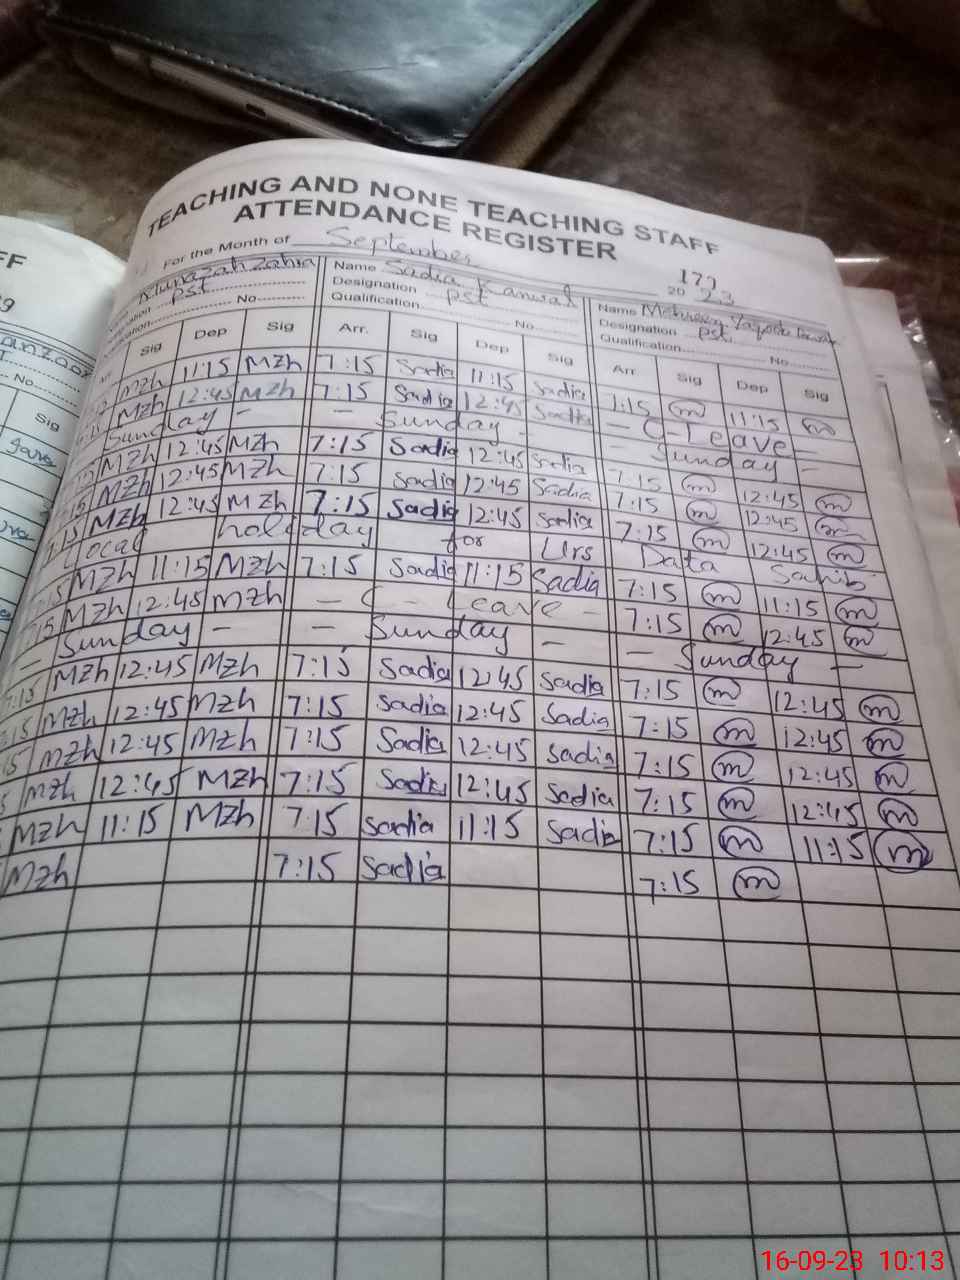 TEACHING AND NONE TEACHING STAFF
ATTENDANCE REGISTER
For the Month of September
177
20 23
Munazah Zahra
pst
No
Name Sadia Kanwal
Designation pst
Qualification No
Name Mehreen
Designation pst
Qualification No
Sig Dep Sig Arr. Sig Dep Sig Arr Sig Dep Sig
Mzh 11:15 Mzh 7:15 Sadia 11:15 Sadia 7:15 m 11:15 m
Mzh 12:45 Mzh 7:15 Sadia 12:45 Sadia - C-Leave -
Sunday - - Sunday - - Sunday -
Mzh 12:45 Mzh 7:15 Sadia 12:45 Sadia 7:15 m 12:45 m
Mzh 12:45 Mzh 7:15 Sadia 12:45 Sadia 7:15 m 12:45 m
7:15 Mzh 12:45 Mzh 7:15 Sadia 12:45 Sadia 7:15 m 12:45 m
Local holiday for Urs Data Sahib
7:15 Mzh 11:15 Mzh 7:15 Sadia 11:15 Sadia 7:15 m 11:15 m
7:15 Mzh 12:45 Mzh - C - Leave - 7:15 m 12:45 m
- Sunday - - Sunday - - Sunday -
7:15 Mzh 12:45 Mzh 7:15 Sadia 12:45 Sadia 7:15 m 12:45 m
:15 Mzh 12:45 Mzh 7:15 Sadia 12:45 Sadia 7:15 m 12:45 m
15 Mzh 12:45 Mzh 7:15 Sadia 12:45 Sadia 7:15 m 12:45 m
Mzh 12:45 Mzh 7:15 Sadia 12:45 Sadia 7:15 m 12:45 m
Mzh 11:15 Mzh 7:15 Sadia 11:15 Sadia 7:15 m 11:15 m
Mzh 7:15 Sadia 7:15 m
16-09-23 10:13